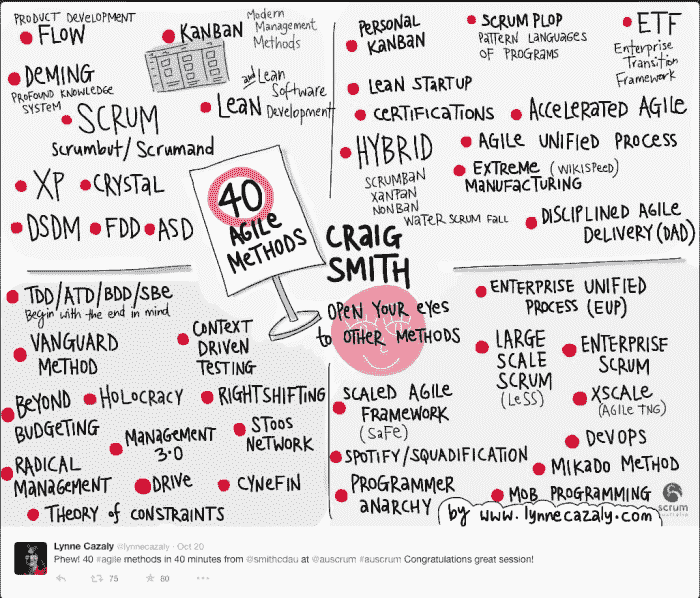 PRODUCT DEVELOPMENT
FLOW
KANBAN
Modern
Management
Methods
DEMING
PROFOUND KNOWLEDGE
SYSTEM
and Lean
Software
Development
LEAN
SCRUM
Scrumbut/Scrumand
XP
CRYSTAL
DSDM
FDD
ASD
40
AGILE
METHODS
CRAIG
SMITH
OPEN YOUR EYES
to OTHER METHODS
PERSONAL
KANBAN
SCRUM PLOP
PATTERN LANGUAGES
OF PROGRAMS
ETF
Enterprise
Transition
Framework
LEAN STARTUP
CERTIFICATIONS
ACCELERATED AGILE
HYBRID
SCRUMBAN
XANPAN
NONBAN
WATER SCRUM FALL
AGILE UNIFIED PROCESS
EXTREME (WIKISPEED)
MANUFACTURING
DISCIPLINED AGILE
DELIVERY (DAD)
TDD/ATD/BDD/SBE
Begin with the end in mind
VANGUARD
METHOD
CONTEXT
DRIVEN
TESTING
BEYOND
BUDGETING
HOLOCRACY
RIGHTSHIFTING
MANAGEMENT
3.0
STOOS
NETWORK
RADICAL
MANAGEMENT
DRIVE
CYNEFIN
THEORY of CONSTRAINTS
ENTERPRISE UNIFIED
PROCESS (EUP)
LARGE
SCALE
SCRUM
(LeSS)
ENTERPRISE
SCRUM
XSCALE
(AGILE TNG)
SCALED AGILE
FRAMEWORK
(SaFe)
DEVOPS
SPOTIFY/SQUADIFICATION
MIKADO METHOD
PROGRAMMER
ANARCHY
MOB PROGRAMMING
by www.lynnecazaly.com
scrum
Lynne Cazaly @lynnecazaly · Oct 20
Phew! 40 #agile methods in 40 minutes from @smithcdau at @auscrum #auscrum Congratulations great session!
75
80